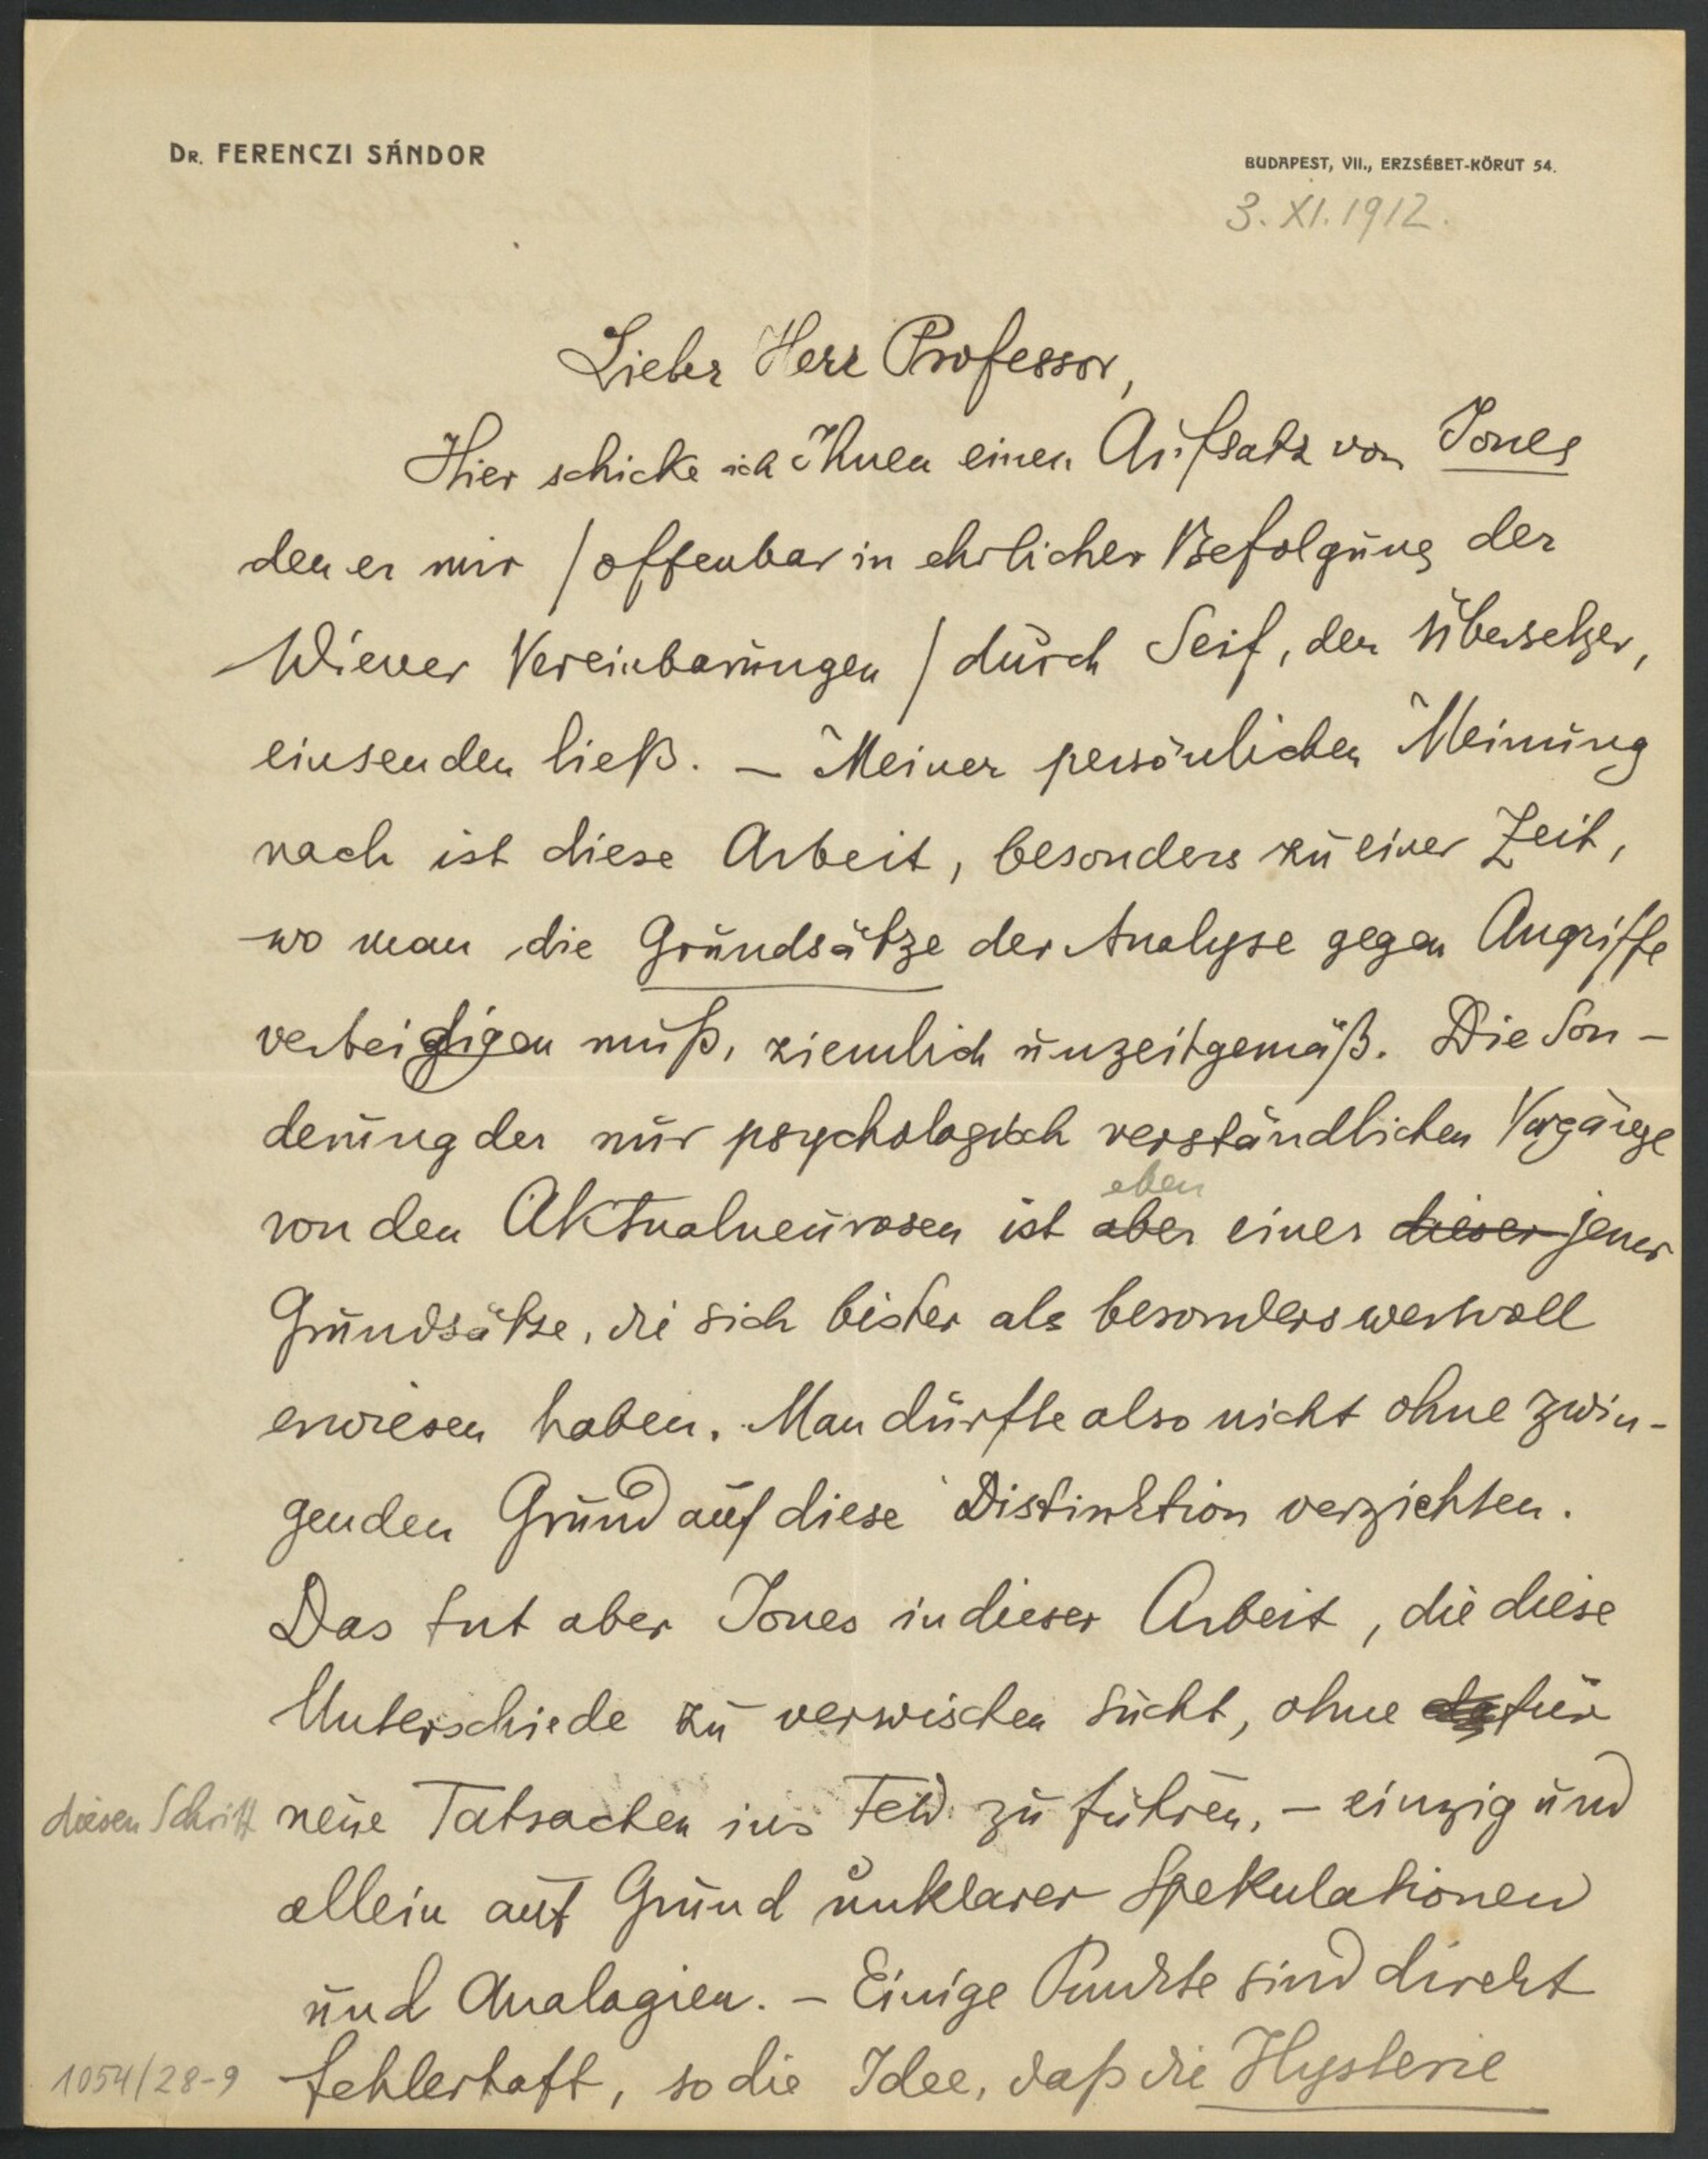 DR. FERENCZI SÁNDOR
BUDAPEST, VII., ERZSÉBET-KÖRUT 54.
3. XI. 1912.
Lieber Herr Professor,
Hier schicke ich Ihnen einen Aufsatz von Jones
den er mir / offenbar in ehrlicher Befolgung der
Wiener Vereinbarungen / durch Seif, den Übersetzer,
einsenden ließ. – Meiner persönlichen Meinung
nach ist diese Arbeit, besonders zu einer Zeit,
wo man die Grundsätze der Analyse gegen Angriffe
verteidigen muß, ziemlich unzeitgemäß. Die Son-
derung der nur psychologisch verständlichen Vorgänge
eben
von den Aktualneurosen ist aber einer dieser jener
Grundsätze, die sich bisher als besonders wertvoll
erwiesen haben. Man dürfte also nicht ohne zwin-
genden Grund auf diese Distinktion verzichten.
Das tut aber Jones in dieser Arbeit, die diese
Unterschiede zu verwischen sucht, ohne dafür
diesen Schritt neue Tatsachen ins Feld zu führen, – einzig und
allein auf Grund unklarer Spekulationen
und Analogien. – Einige Punkte sind direkt
1054/28-9 fehlerhaft, so die Idee, daß die Hysterie